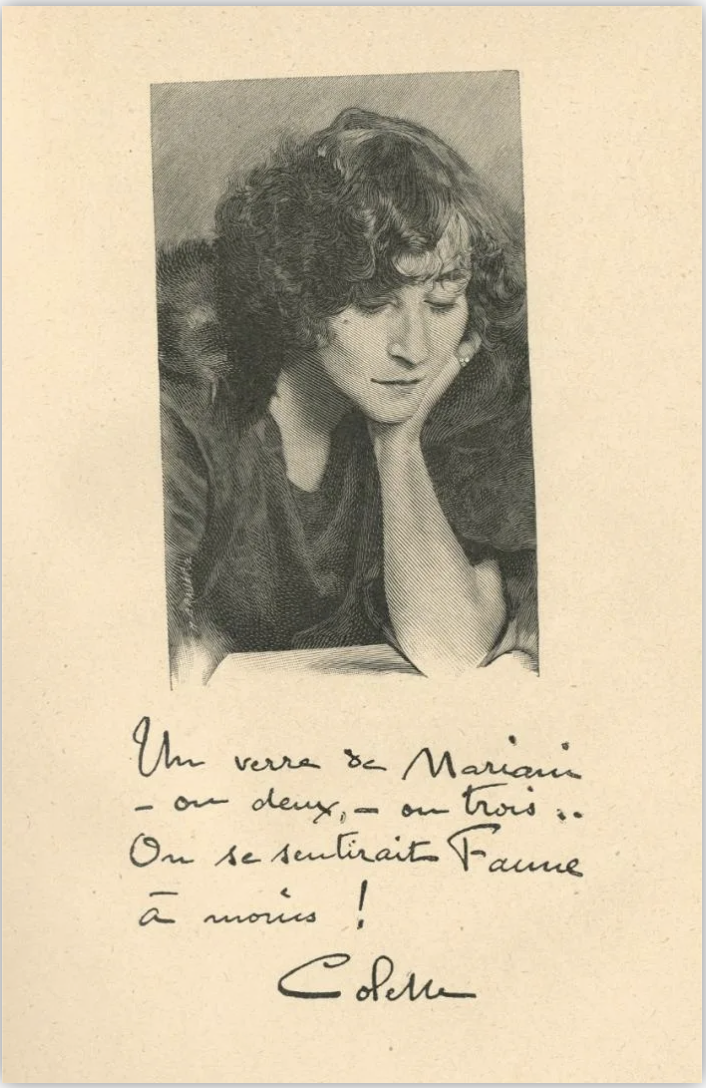 Un verre de Mariani
- ou deux, - ou trois ..
On se sentirait Faune
à moins !
Colette